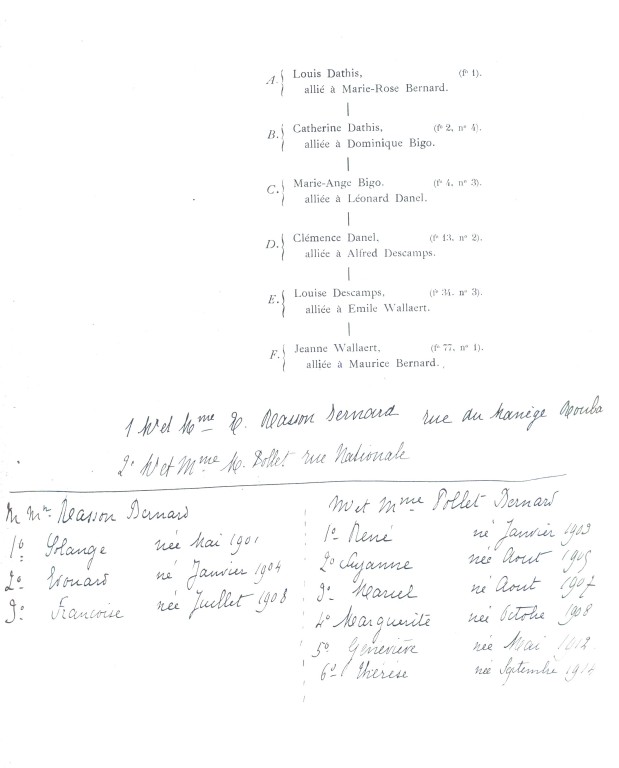 A. Louis Dathis, (fº 1).
allié à Marie-Rose Bernard.
B. Catherine Dathis, (fº 2, nº 4).
alliée à Dominique Bigo.
C. Marie-Ange Bigo. (fº 4, nº 3).
alliée à Léonard Danel.
D. Clémence Danel, (fº 13, nº 2).
alliée à Alfred Descamps.
E. Louise Descamps, (fº 34, nº 3).
alliée à Emile Wallaert.
F. Jeanne Wallaert, (fº 77, nº 1).
alliée à Maurice Bernard.
1 Mr et Mme E. Masson Bernard rue du Manège Rouba
2º Mr et Mme M. Pollet rue Nationale
M Mme Masson Bernard
1º Solange née Mai 1901
2º Edouard né Janvier 1904
3º Francoise née Juillet 1908
Mr et Mme Pollet Bernard
1º René né Janvier 1903
2º Suzanne née Aout 1905
3º Marcel né Aout 1907
4º Marguerite née Octobre 1908
5º Geneviève née Mai 1912.
6º Thérèse née Septembre 1914